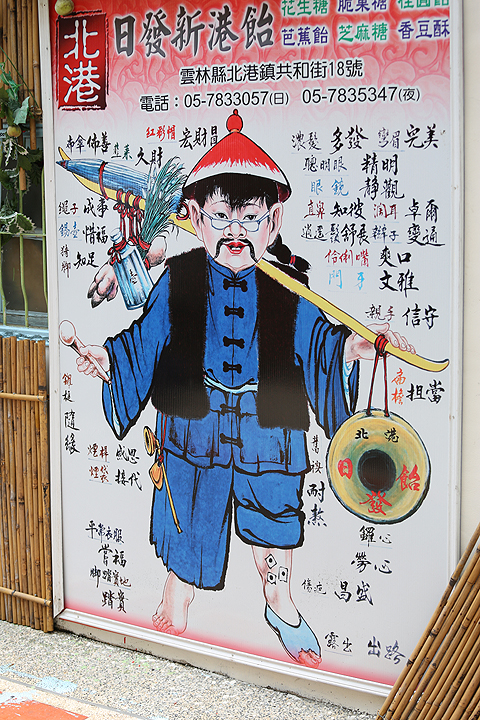 北港
日發新港飴
花生糖 脆菓糖 桂圓飴
芭蕉飴 芝麻糖 香豆酥
雲林縣北港鎮共和街18號
電話：05-7833057(日) 05-7835347(夜)
布傘佛善
韭菜 久財
紅彩帽 宏財昌
濃髮 多發
彎眉 完美
聰明眼 精明
眼鏡 靜觀
直鼻 知被
潤耳 卓爾
逍遥鬚 舒展
辮子 變通
伶俐嘴 爽口
門牙 文雅
親手 信守
繩子 成事
錫壺 惜福
豬腳 知足
鑼槌 隨緣
扁擔 担當
北港
日發飴
煙桿 感恩
煙袋 接代
舊褲 耐熬
平常衣服
當福
腳踏實地
踏實
鑼心
勞心
昌盛
露出 出路